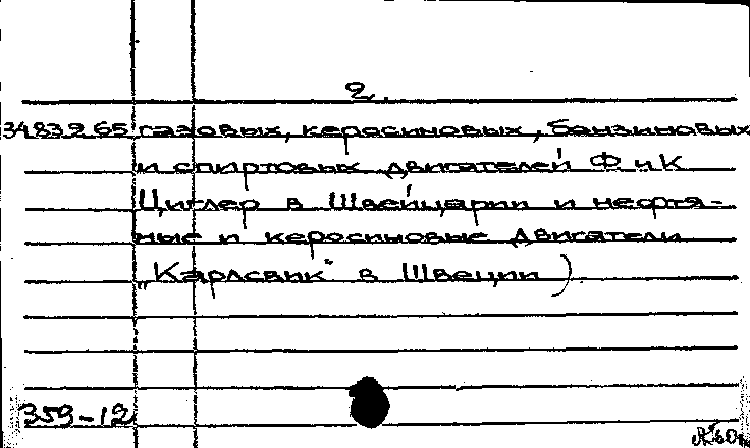 2.
3483965 газовых, керосиновых, бензиновых
и спиртовых двигателей Ф и К
Циглер в Швейцарии и нефтя-
ные и керосиновые двигатели
„Карлсвик" в Швеции)
359-12